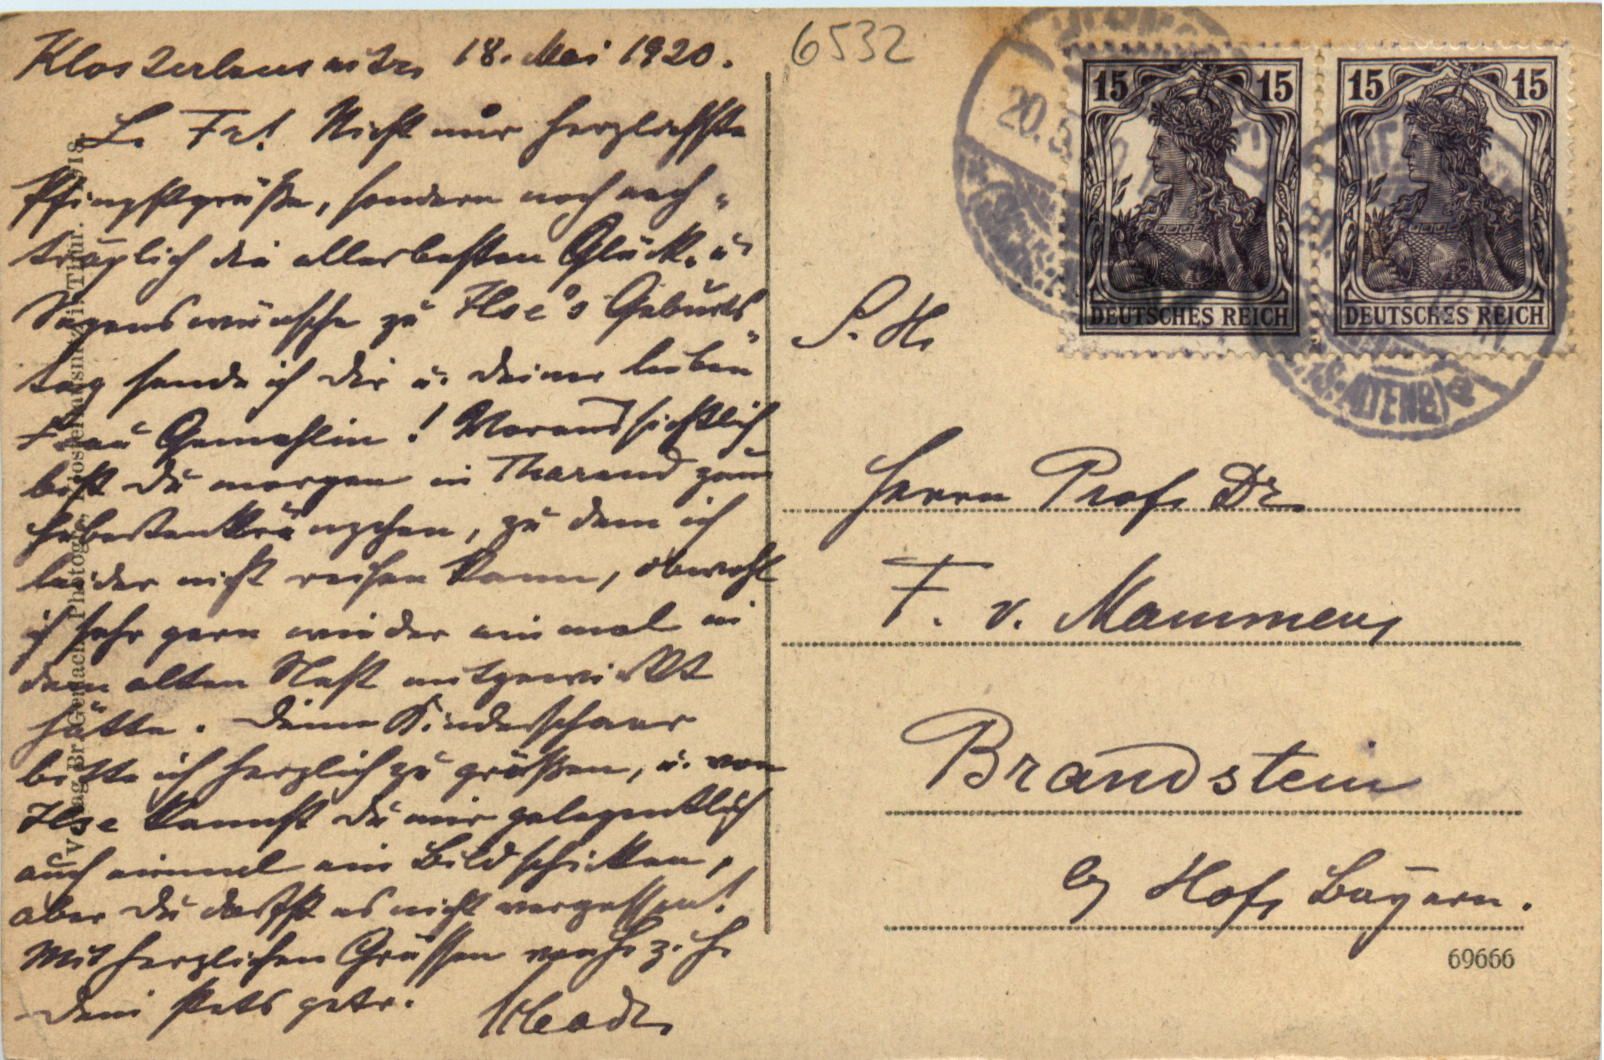 Klosterlausnitz, 18. Mai 1920.
L. Fr! Nicht nur herzlichste
Pfingstgrüße, sondern noch nach-
träglich die allerbesten Glück- u.
Segenswünsche zu Ilse's Geburts-
tag sende ich Dir u. Deiner lieben
Frau Gemahlin! Voraussichtlich
bist Du morgen in Tharand zum
kränzchen, zu dem ich
leider nicht reisen kann, obwohl
ich sehr gern wieder einmal in
dem alten Nest mitgewirkt
hätte. Deine Kinderschaar
bitte ich herzlich zu grüßen, u. von
Ilse kannst Du mir gelegentlich
auch einmal ein Bild schicken,
aber Du darfst es nicht vergessen!
Mit herzlichen Grüssen von H. z. H.
Dein stets getr.
6532
15 15
DEUTSCHES REICH
15 15
DEUTSCHES REICH
20.5
(S.-ALTENB)
S. H.
Herrn Prof. Dr.
F. v. Mammen,
Brandstein
b/ Hof, Bayern.
69666
Verlag Br. Gerlach, Photogr., Klosterlausnitz i. Thür. 1918